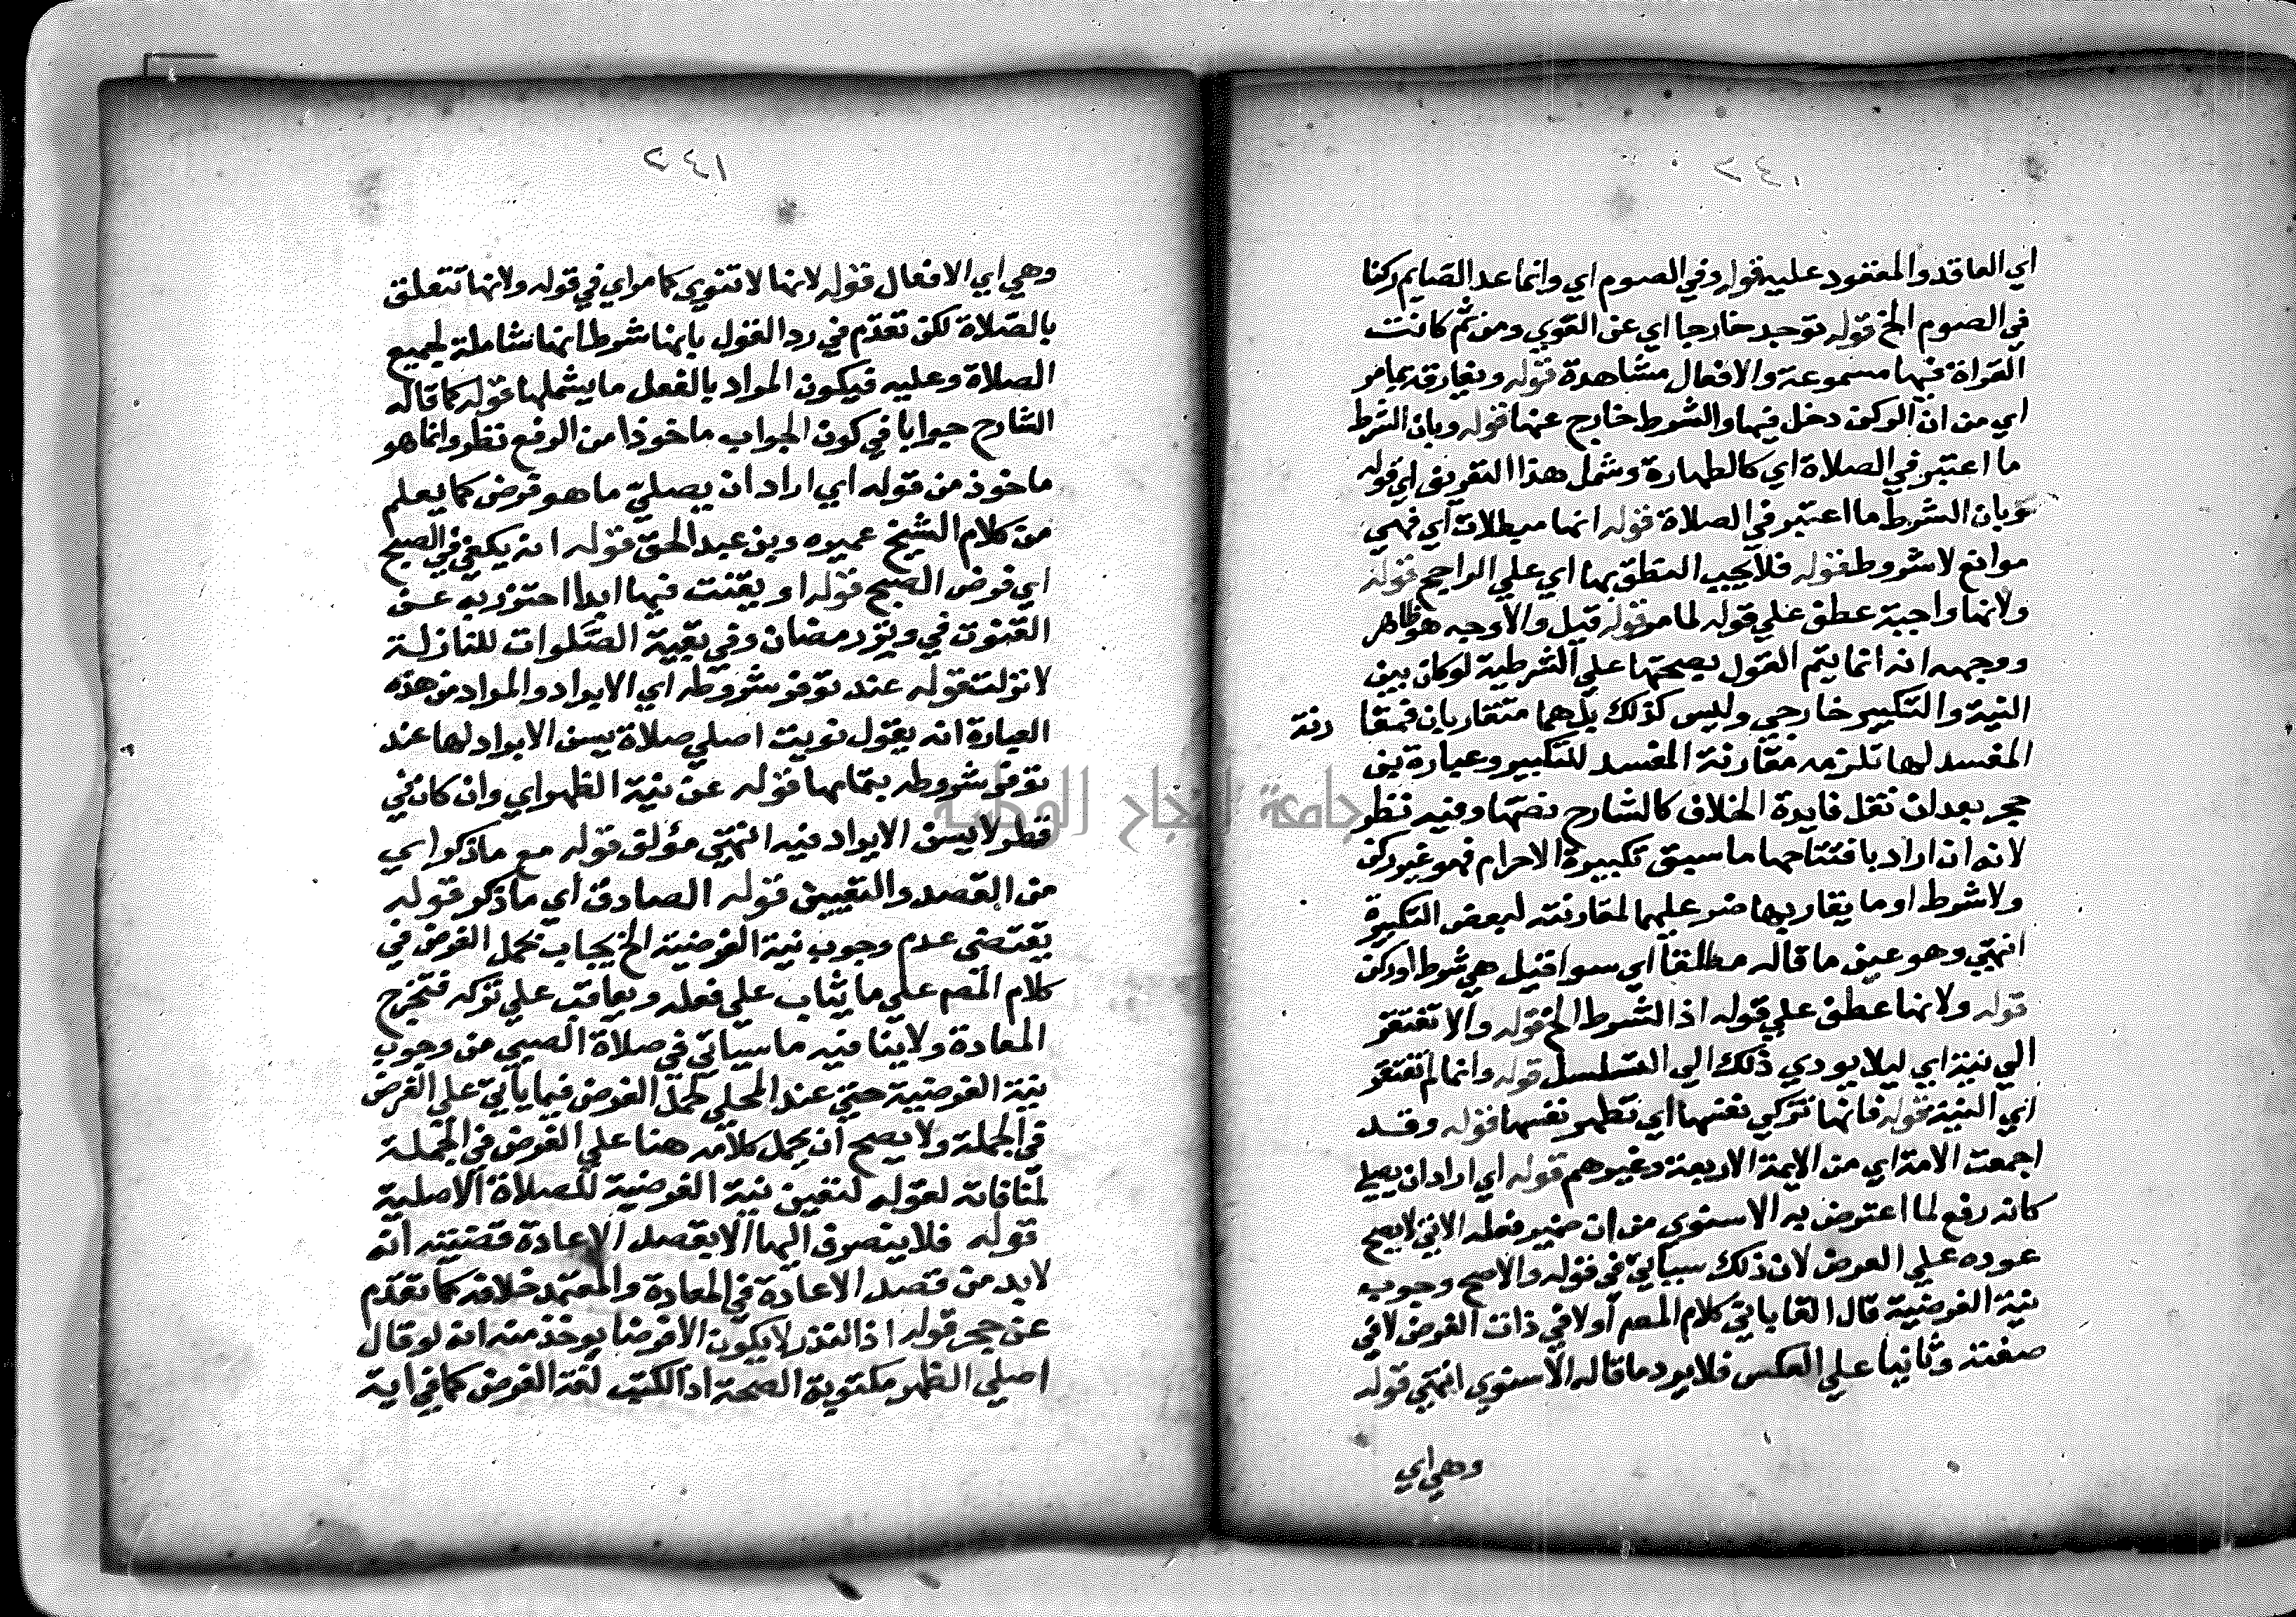 ١٤٢
اي العاقد والمعقود عليه قوله وفي الصوم اي وانما عد الصايم ركنا
في الصوم الخ قوله توجد خارجا اي عن القوي ومن ثم كانت
القراة فيها مسموعة والافعال مشاهدة قوله وتفارقه بما مر
اي من ان الركن دخل فيها والشرط خارج عنها قوله وبان الشرط
ما اعتبر في الصلاة اي كالطهارة وشمل هذا التعريف اي قوله
وبان الشرط ما اعتبر في الصلاة قوله انها مبطلات اي فهي
موانع لا شروط قوله فلا يجب النطق بها اي علي الراجح قوله
ولانها واجبة عطف علي قوله لما مر قوله قيل والاوجه هو ظاهر
ووجهه انه انما يتم القول بصحتها علي الشرطية لو كان بين
النية والتكبير خارجي وليس كذلك بل هما متقاربان فمقا رنة
المفسد لها تلزمه مقارنة المفسد للتكبير وعبارة بن
حجر بعد ان نقل فايدة الخلاف كالشارح نصها وفيه نظر
لانه ان اراد بافتتاحها ما سبق تكبيرة الاحرام فهو غير ركن
ولا شرط او ما يقاربها ضر عليهما لمقارنته لبعض التكبيرة
انتهي وهو عين ما قاله مطلقا اي سوا قيل هي شرط او ركن
قوله ولانها عطف علي قوله اذ الشرط الخ قوله والا تفتقر
الي نية اي ليلا يودي ذلك الي التسلسل قوله وانما لم تفتقر
اي النية قوله فانها تزكي نفسها اي تطهر نفسها قوله وقد
اجمعت الامة اي من الايمة الاربعة وغيرهم قوله اي اراد ان يصلي
كانه رفع لما اعترض به الاسنوي من ان ضمير فعله الاتي لا يصح
عوده علي الفرض لان ذلك سياتي في قوله والاصح وجوب
نية الفرضية قال القاياتي كلام المصم اولا في ذات الفرض لا في
صفته وثانيا علي العكس فلا يرد ما قاله الاسنوي انتهي قوله
وهي اي
١٤٢
وهي اي الافعال قوله لانها لا تنوي كما مر اي في قوله ولانها تتعلق
بالصلاة لكن تقدم في رد القول بانها شرط انها شاملة لجميع
الصلاة وعليه فيكون المراد بالفعل ما يشملها قوله كما قاله
الشارح جوابا في كون الجواب ماخوذا من الرفع نظر وانما هو
ماخوذ من قوله اي اراد ان يصلي ما هو فرض كما يعلم
من كلام الشيخ عميره وبن عبد الحق قوله انه يكفي في الصبح
اي فرض الصبح قوله او يقنت فيها ابدا احترز به عن
القنوت في وتر رمضان وفي بقية الصلوات للنازلة
لا نزلت قوله عند توفر شروطه اي الابراد والمراد من هذه
العبارة انه يقول نويت اصلي صلاة يسن الابراد لها عند
توفر شروطه بتمامها قوله عن نية الظهر اي وان كان في
قطر لا يسن الابراد فيه انتهي مؤلف قوله مع ما ذكر اي
من القصد والتعيين قوله الصادق اي ما ذكر قوله
يقتضي عدم وجوب نية الفرضية الخ يجاب بحمل الفرض في
كلام المصم علي ما يثاب علي فعله ويعاقب علي تركه فتخرج
المعادة ولا ينافيه ما سياتي في صلاة الصبي من وجوب
نية الفرضية حتي عند المحلي لحمل الفرض فيما ياتي علي الفرض
في الجملة ولا يصح ان يحمل كلامه هنا علي الفرض في الجملة
لمنافاته لقوله لتعين نية الفرضية للصلاة الاصلية
قوله فلا ينصرف اليها الا بقصد الاعادة قضيته انه
لا بد من قصد الاعادة في المعادة والمعتمد خلافه كما تقدم
عن حجر قوله اذ النذر لا يكون الا فرضا يوخذ منه انه لو قال
اصلي الظهر مكتوبة الصحة اذ الكتب لغة الفرض كما في اية